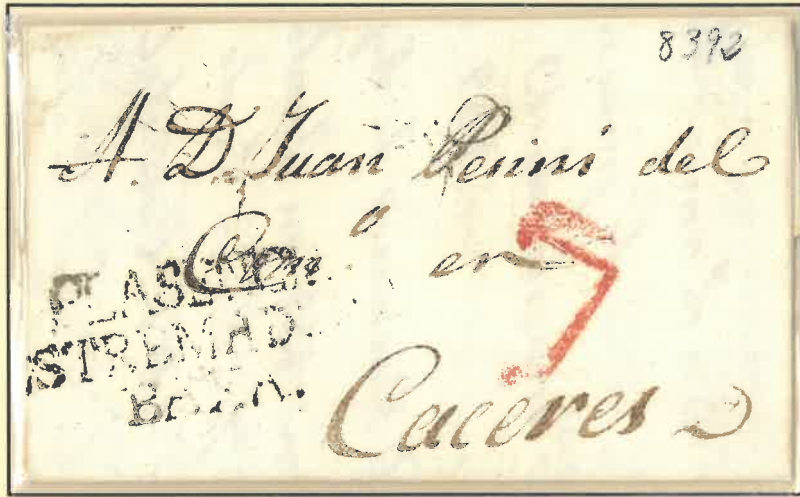 8392
A. D. Juan Perini del
Comº en
7
PLASENCIA
ESTREMAD.
BAXA.
Caceres